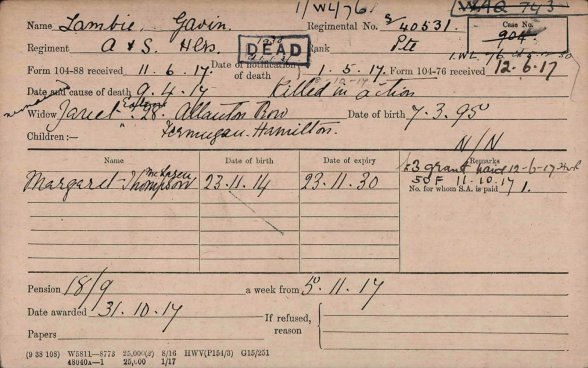 1/WL/761
Name Lambie, Gavin. Regimental No. S/40531. Case No. 904
Regiment A & S. Hrs. DEAD Rank Pte
Form 104-88 received 11.6.17. Date of notification of death 1.5.17. Form 104-76 received 12.6.17
Date and cause of death 9.4.17 Killed in action
Widow Janet 28. Allanton Row Date of birth 7.3.95
Children:— Hamilton.
N/N
Name Date of birth Date of expiry Remarks
Margaret Thompson 23.11.14 23.11.30 £3 grant paid 12-6-17
No. for whom S.A. is paid 1.
11-10-17
Pension 18/9 a week from 5.11.17
Date awarded 31.10.17 If refused, reason
Papers
(9 38 108) W5811—8773 25,000(2) 8/16 HWV(P154/3) G15/251
48040a—1 25,000 1/17